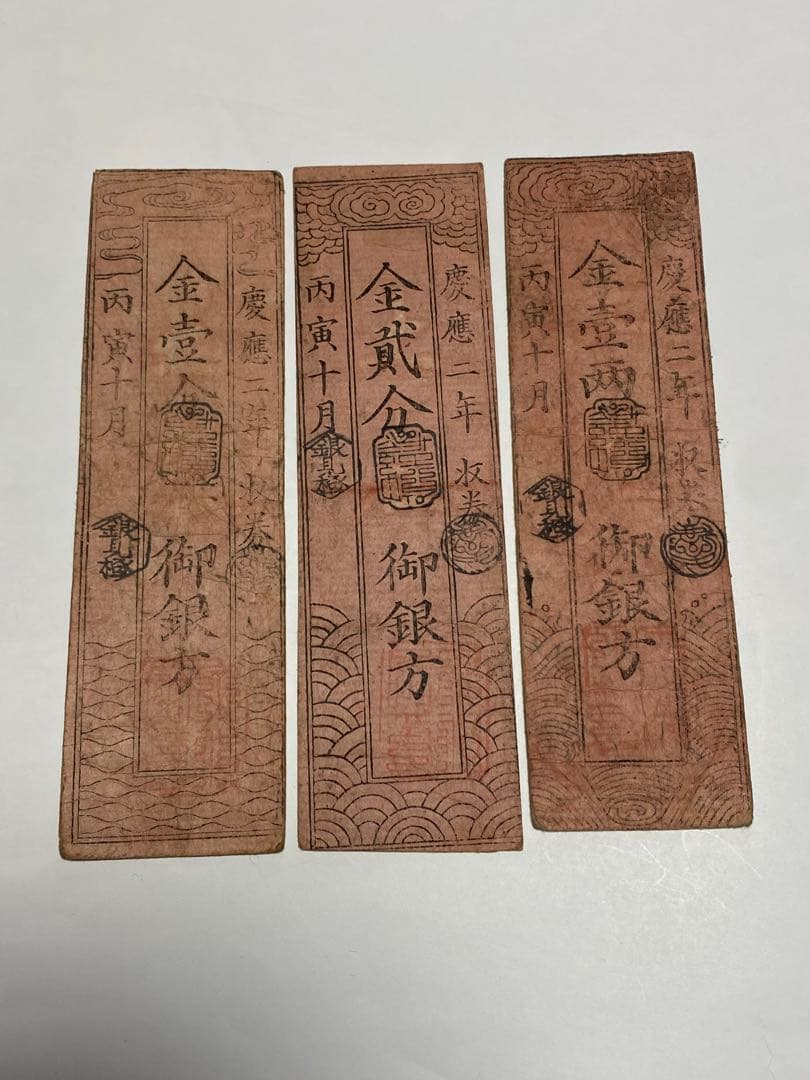 慶應二年
金壹分
御銀方
丙寅十月
銀見極
慶應二年
金貳分
御銀方
丙寅十月
銀見極
慶應二年
金壹両
御銀方
丙寅十月
銀見極